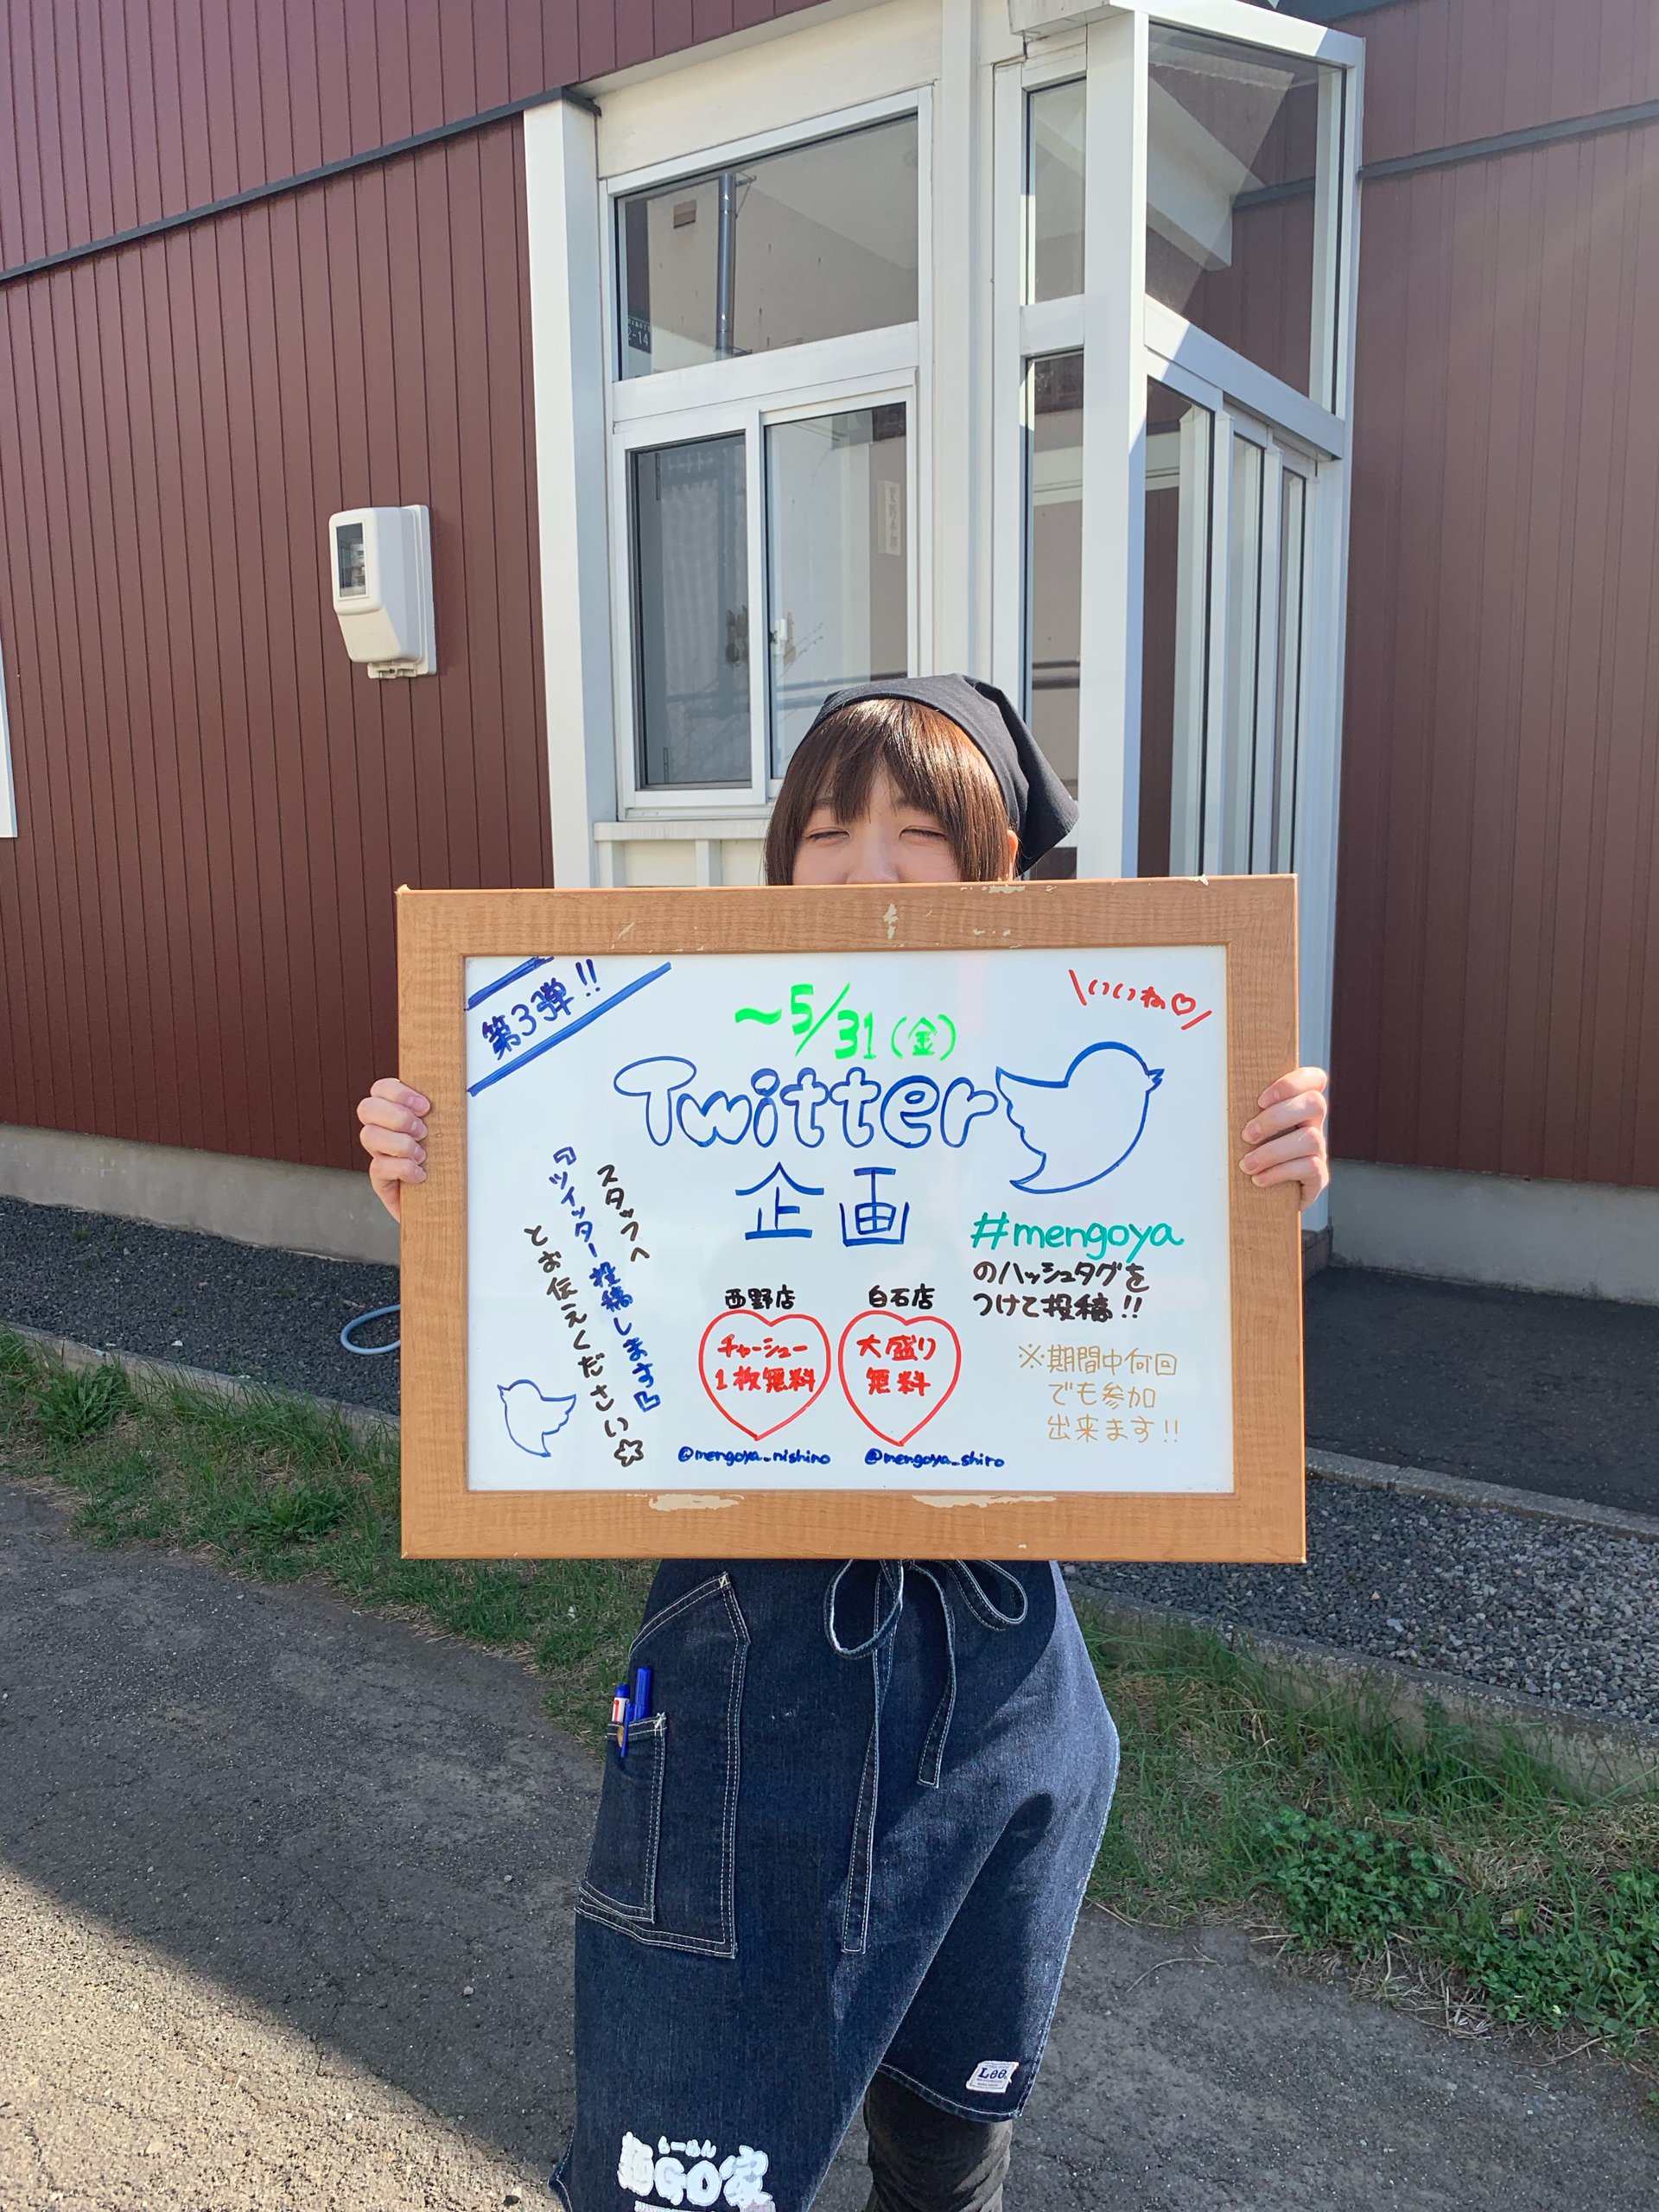 第3弾!!
～5/31(金)
\いいね♡/
Twitter
企画
スタッフへ
『ツイッター投稿します』
とお伝えください☆
#mengoya
のハッシュタグを
つけて投稿!!
西野店
チャーシュー
1枚無料
@mengoya_nishino
白石店
大盛り
無料
@mengoya_shiro
※期間中何回
でも参加
出来ます!!
Lee
らーめん
麺GO家